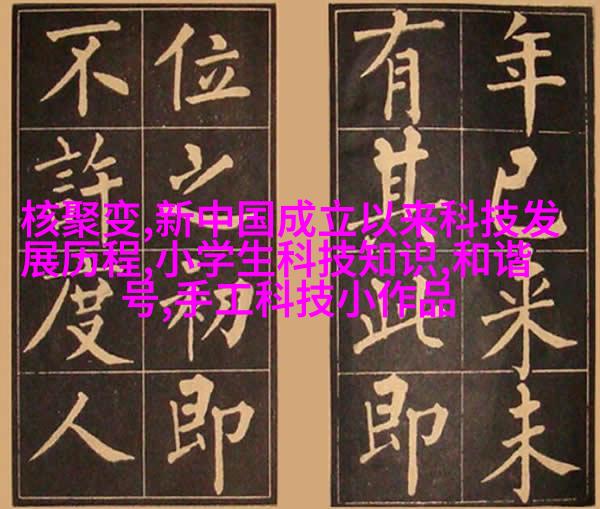 核聚变,新中国成立以来科技发
展历程,小学生科技知识,和谐
号,手工科技小作品
年已来未
有其此即
位之初即
不許度人